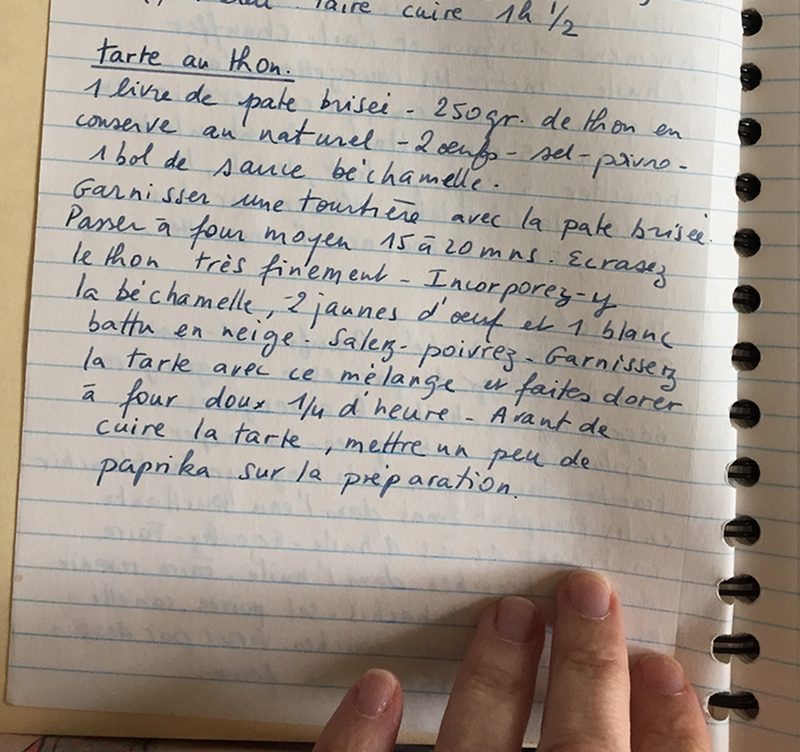 faire cuire 1h 1/2
tarte au thon.
1 livre de pate briseé - 250gr. de thon en
conserve au naturel - 2 œufs - sel - poivre -
1 bol de sauce béchamelle.
Garnisser une tourtière avec la pate briseé.
Passer à four moyen 15 à 20 mns. Ecrasez
le thon très finement - Incorporez-y
la béchamelle, - 2 jaunes d'œuf et 1 blanc
battu en neige. Salez - poivrez - Garnissez
la tarte avec ce mélange et faites dorer
à four doux 1/4 d'heure - Avant de
cuire la tarte, mettre un peu de
paprika sur la préparation.